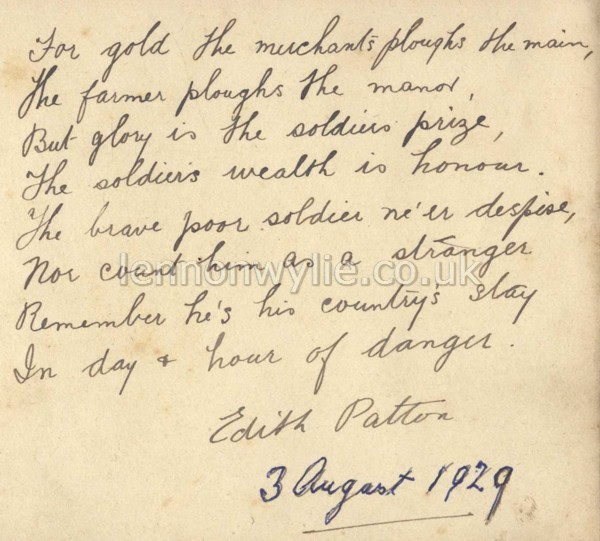 For gold the merchants ploughs the main,
The farmer ploughs the manor,
But glory is the soldiers prize,
The soldier's wealth is honour.
The brave poor soldier ne'er despise,
Nor count him as a stranger
lennonwylie.co.uk
Remember he's his country's stay
In day & hour of danger.
Edith Patton
3 August 1929